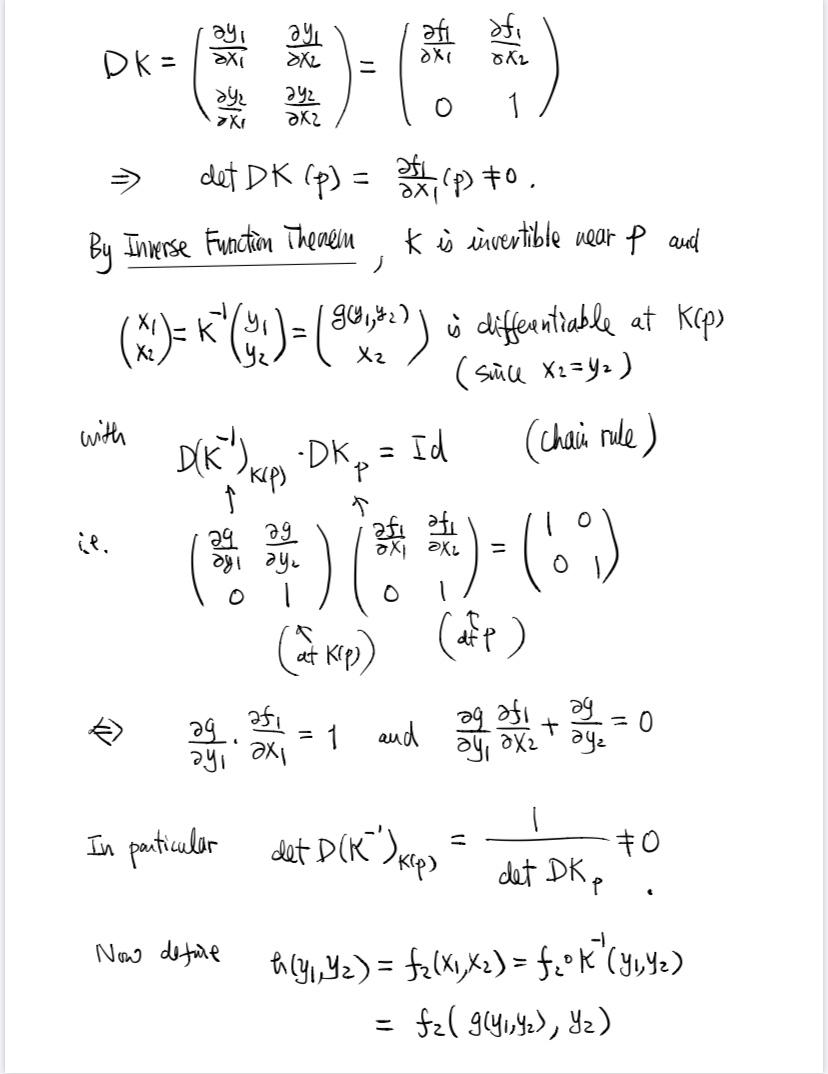 DK = \begin{pmatrix} \frac{\partial y_1}{\partial x_1} & \frac{\partial y_1}{\partial x_2} \\ \frac{\partial y_2}{\partial x_1} & \frac{\partial y_2}{\partial x_2} \end{pmatrix} = \begin{pmatrix} \frac{\partial f_1}{\partial x_1} & \frac{\partial f_1}{\partial x_2} \\ 0 & 1 \end{pmatrix}
⇒ det DK (p) = \frac{\partial f_1}{\partial x_1}(p) ≠ 0 .
By Inverse Function Theorem , K is invertible near p and
\begin{pmatrix} x_1 \\ x_2 \end{pmatrix} = K^{-1} \begin{pmatrix} y_1 \\ y_2 \end{pmatrix} = \begin{pmatrix} g(y_1,y_2) \\ x_2 \end{pmatrix} is differentiable at K(p)
(since x_2 = y_2)
with D(K^{-1})_{K(p)} · DK_p = Id (chain rule)
↑ ↑
i.e. \begin{pmatrix} \frac{\partial g}{\partial y_1} & \frac{\partial g}{\partial y_2} \\ 0 & 1 \end{pmatrix} \begin{pmatrix} \frac{\partial f_1}{\partial x_1} & \frac{\partial f_1}{\partial x_2} \\ 0 & 1 \end{pmatrix} = \begin{pmatrix} 1 & 0 \\ 0 & 1 \end{pmatrix}
(at K(p)) (at p)
⇔ \frac{\partial g}{\partial y_1} · \frac{\partial f_1}{\partial x_1} = 1 and \frac{\partial g}{\partial y_1} \frac{\partial f_1}{\partial x_2} + \frac{\partial g}{\partial y_2} = 0
In particular det D(K^{-1})_{K(p)} = \frac{1}{det DK_p} ≠ 0 .
Now define h(y_1,y_2) = f_2(x_1,x_2) = f_2 ∘ K^{-1}(y_1,y_2)
= f_2( g(y_1,y_2), y_2)